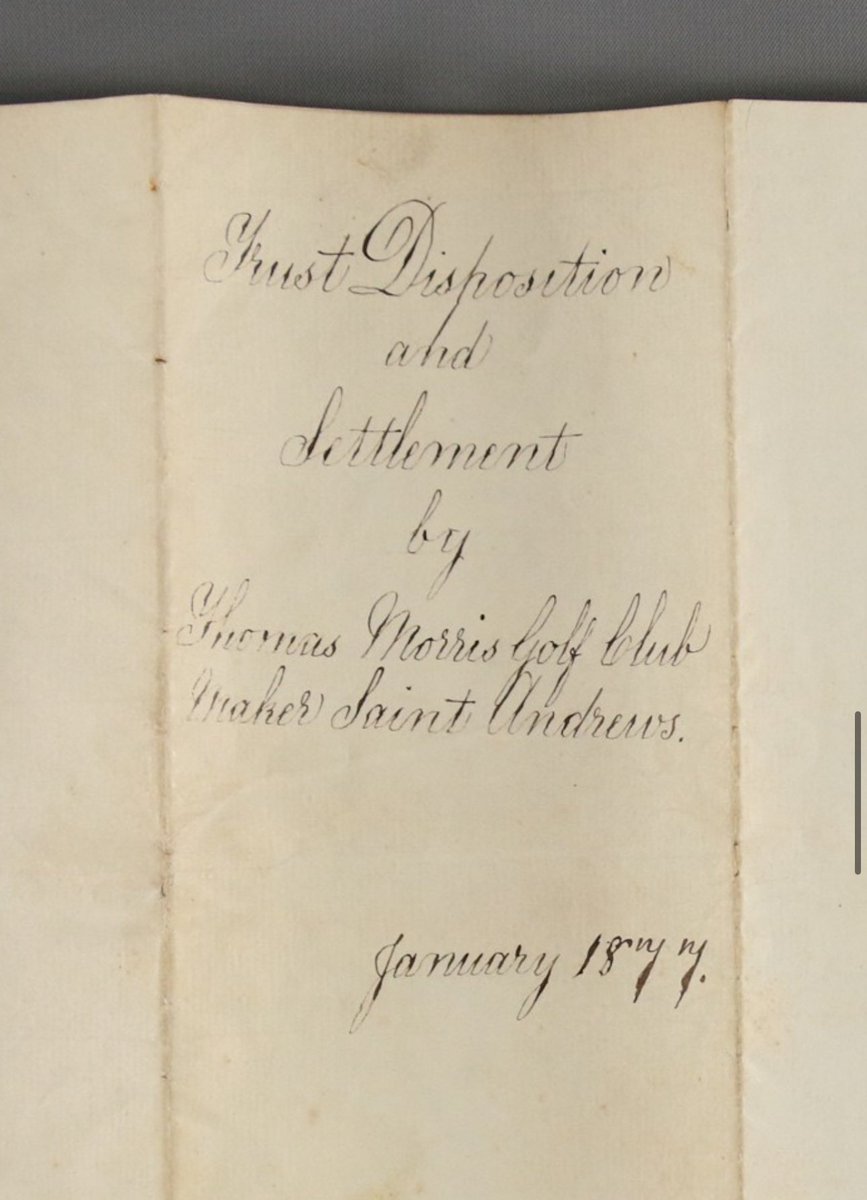 Trust Disposition
and
Settlement
by
Thomas Morris Golf Club
Maker Saint Andrews.
January 1877.